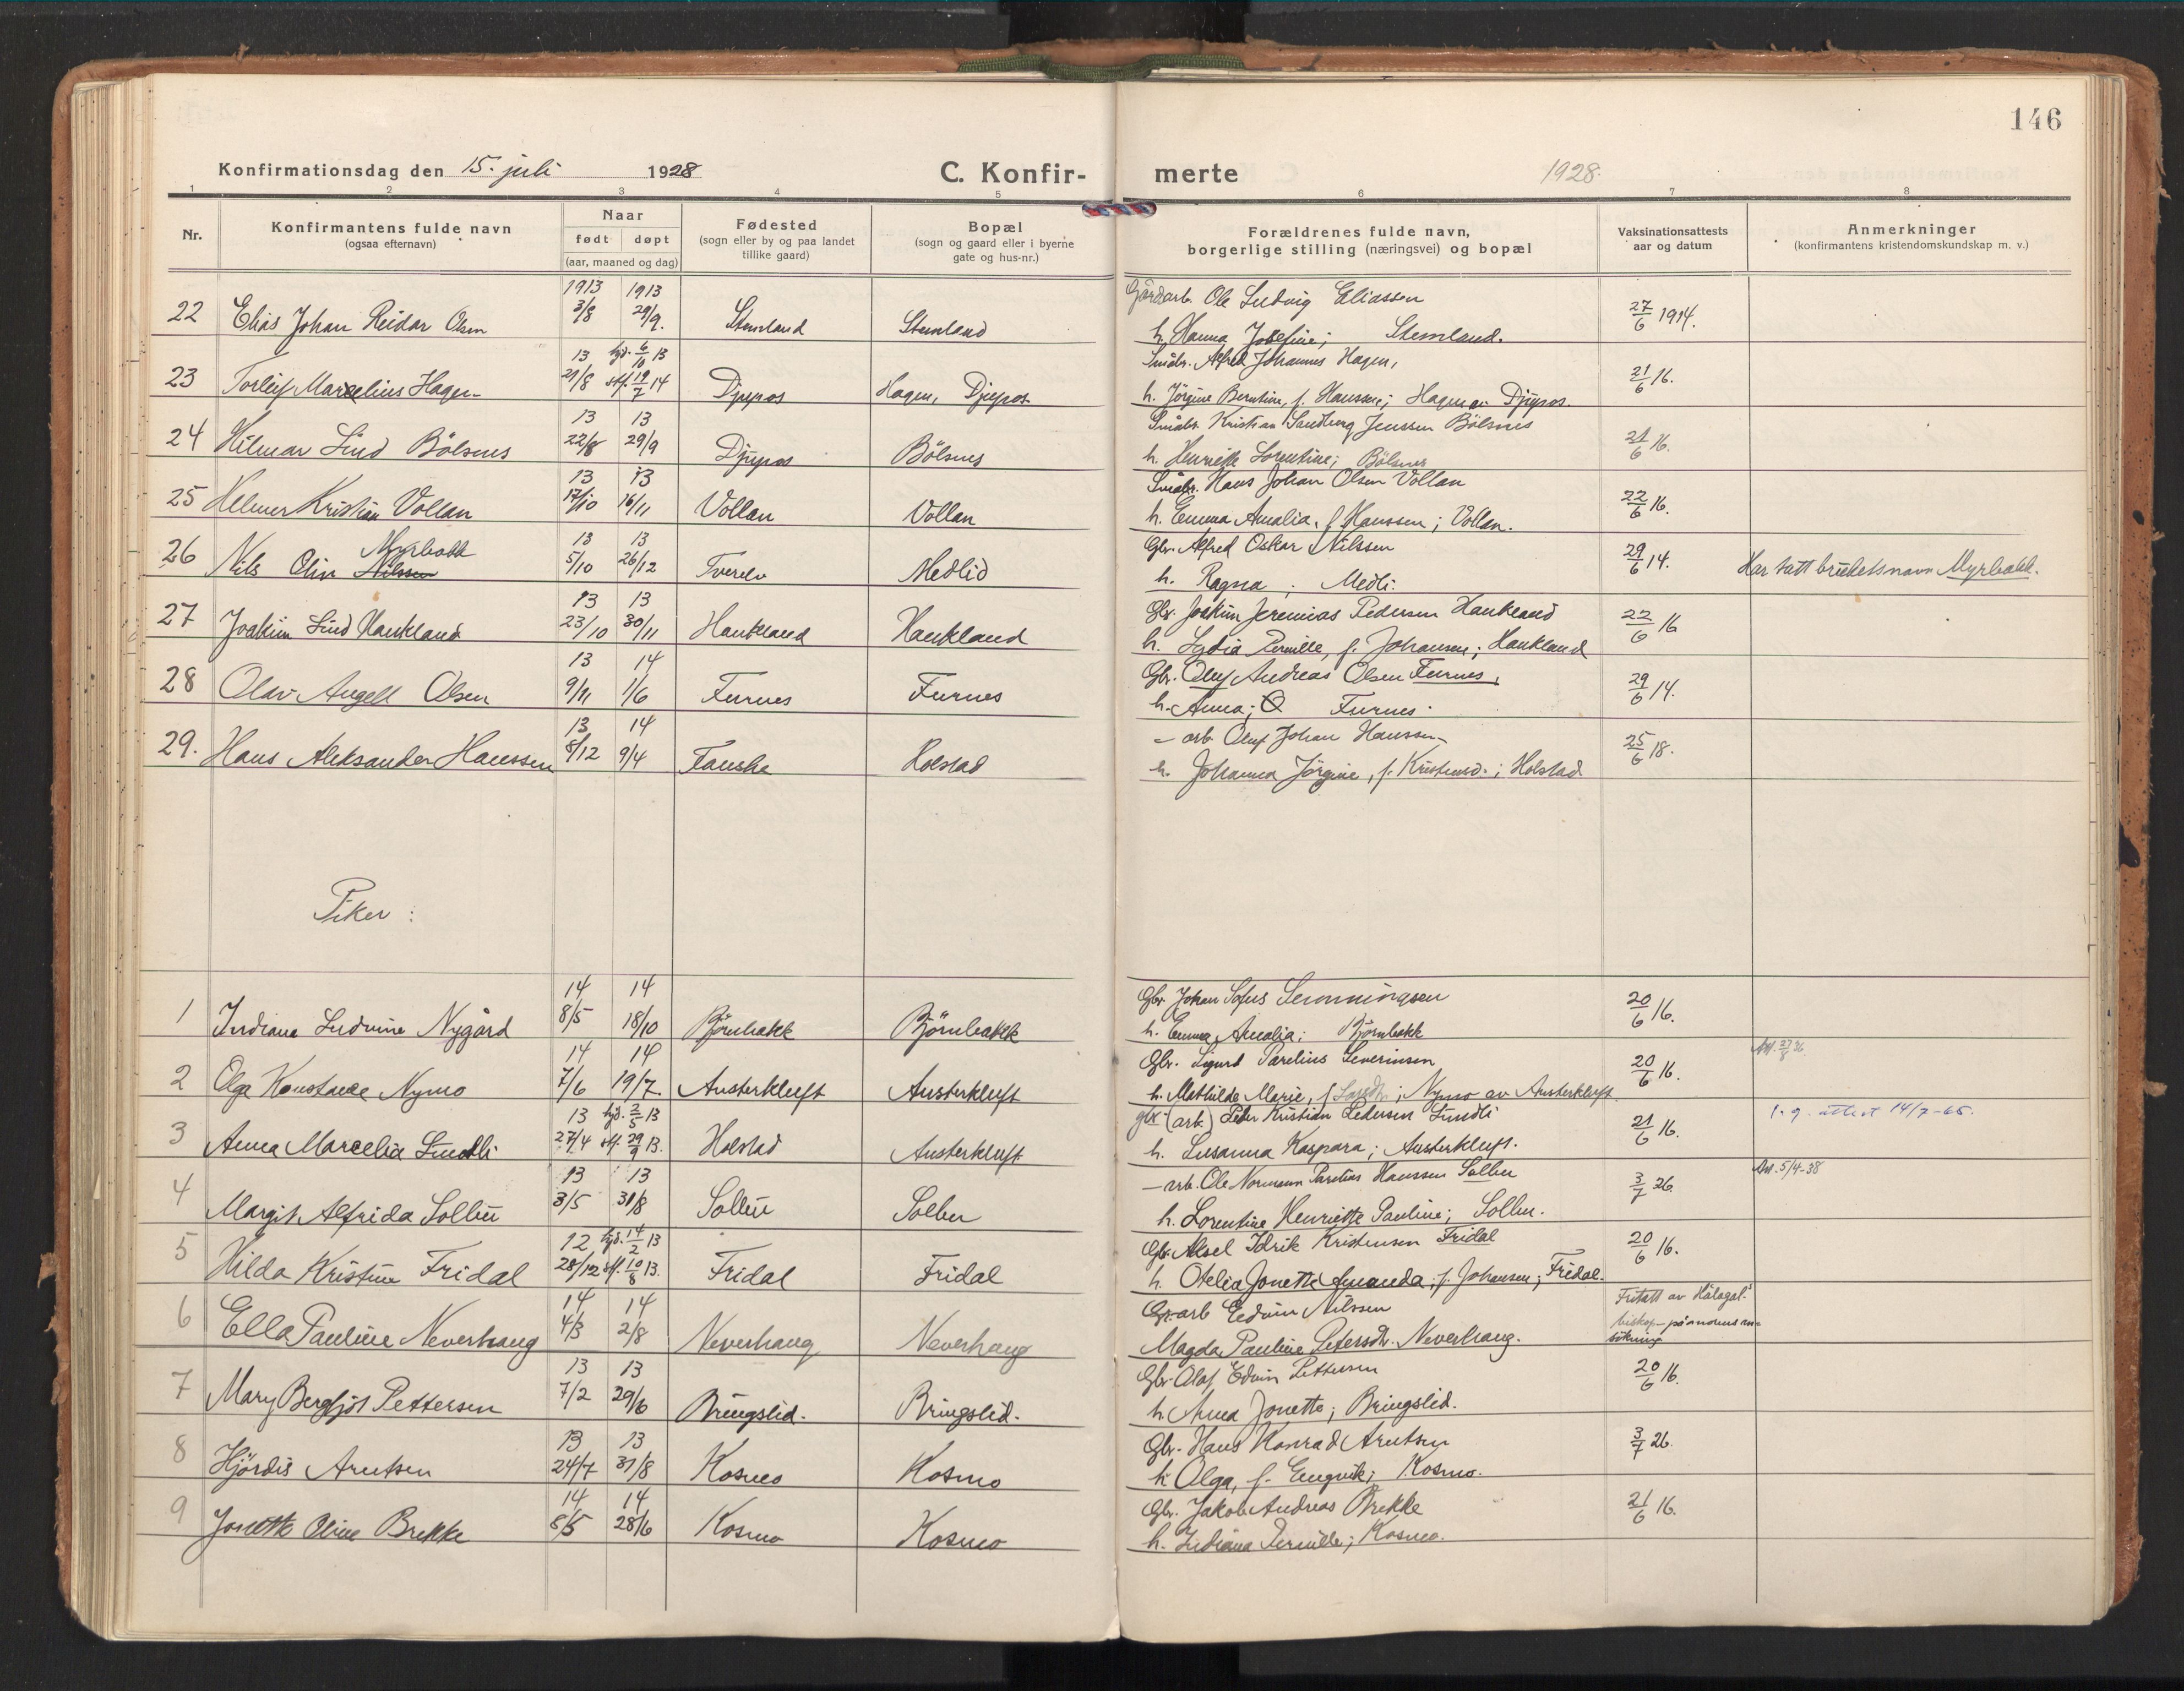 146
Konfirmationsdag den 15. juli 1928
C. Konfir-
merte
1928.
1 2 3 4 5 6 7 8
Nr.
Konfirmantens fulde navn
(ogsaa efternavn)
Naar
født døpt
(aar, maaned og dag)
Fødested
(sogn eller by og paa landet
tillike gaard)
Bopæl
(sogn og gaard eller i byerne
gate og hus-nr.)
Forældrenes fulde navn,
borgerlige stilling (næringsvei) og bopæl
Vaksinationsattests
aar og datum
Anmerkninger
(konfirmantens kristendomskundskap m. v.)
1913 1913 Gårdarb. Ole Ludvig Eliassen
22 Elias Johan Reidar Olsen 3/8 29/9. Stemland Stemland 27/6 1914.
h. Hanna Josefine; Stemland.
13 hjd. 6/10 13 Småbr. Alfred Johannes Hagen,
23 Torleif Marselius Hagen 29/8 stf. 19/7 14 Djupos Hagen, Djupos 21/6 16.
h. Jörgine Berntine, f. Hanssen; Hagen av Djupos.
13 13 Småbr. Kristian Sandberg Jenssen Bölsnes
24 Hilmar Lind Bölsnes 22/8 29/9 Djupos Bölsnes 21/6 16.
h. Henriette Lorentine; Bölsnes
13 13 Småbr. Hans Johan Olsen Vollan
25 Helmer Kristian Vollan 17/10 16/11 Vollan Vollan 22/6 16.
h. Emma Amalia, f. Hanssen; Vollan.
Myrbakk 13 13 Gbr. Alfred Oskar Nilssen
26 Nils Olin Nilssen 5/10 26/12 Tverelv Medlid 29/6 14. Har tatt bruketsnavn Myrbakk.
h. Ragna; Medli.
13 13 Gbr. Joakim Jeremias Pedersen Haukland
27 Joakim Lind Haukland 23/10 30/11 Haukland Haukland 22/6 16
h. Lydia Pernille, f. Johansen; Haukland
13 14 Gbr. Oluf Andreas Olsen Furnes,
28 Olav Angell Olsen 9/11 1/6 Furnes Furnes 29/6 14.
h. Anna; O Furnes.
13 14 – arb. Oluf Johan Hanssen
29. Hans Aleksander Hanssen 8/12 9/4 Fauske Holstad 25/6 18.
h. Johanna Jörgine, f. Kristensd.; Holstad
Piker :
14 14 Gbr. Johan Sofus Lemmingsen
1 Indiana Ludvine Nygård 8/5 18/10 Bjørnbakk Björnbakk 20/6 16.
h. Emma Amalia; Bjørnbakk
14 14 Gbr. Sigurd Parelius Severinsen
2 Olga Konstanse Nymo 7/6 19/7. Austerkluft Austerkluft 20/6 16.
h. Mathilde Marie, f. ; Nymo av Austerkluft.
13 hjd. 2/5 13 gbr (arb.) Peder Kristian Pedersen Lundli 1. g. attest 14/7-65.
3 Anna Marcelia Lundli 27/4 stf. 29/9 13. Holstad Austerkluft 21/6 16.
h. Susanna Kaspara; Austerkluft.
13 13 – arb. Ole Normann Parelius Hanssen Solbu Att. 5/4-38
4 Margit Alfrida Solbu 3/5 31/8 Solbu Solbu 3/7 26.
h. Lorentine Henriette Pauline; Solbu.
12 hjd. 14/2 13 Gbr. Aksel Idrik Kristensen Fridal
5 Hilda Kristine Fridal 28/12 stf. 10/8 13. Fridal Fridal 20/6 16.
h. Otelia Jonette Amanda, f. Johansen; Fridal.
14 14 Gr.arb Eedvin Nilssen Fritatt av Hålogal.
6 Ella Pauline Neverhaug 4/3 2/8 Neverhaug Neverhaug biskop på andens an-
Magda Pauline Petersdr. Neverhaug. søkning
13 13 Gbr. Olaf Edvin Pettersen
7 Mary Bergljot Pettersen 7/2 29/6 Bringslid. Bringslid. 20/6 16.
h. Anna Jonette; Bringslid.
13 13 Gbr. Hans Konrad Arntsen
8 Hjördis Arntsen 24/7 31/8 Kosmo Kosmo 3/7 26.
h. Olga, f. Engvik; Kosmo.
14 14 Gbr. Jakob Andreas Brekke
9 Jonette Oline Brekke 8/5 28/6 Kosmo Kosmo 21/6 16.
h. Indiana Pernille; Kosmo.